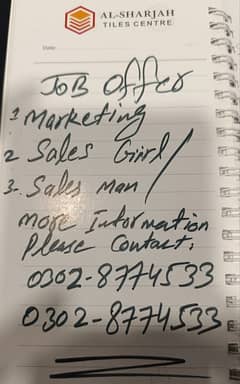 AL-SHARJAH
TILES CENTRE
Date
JOB Offer
1 Marketing
2 Sales Girl /
3- Sales man /
more Information
Please Contact,
0302-8774533
0302-8774533